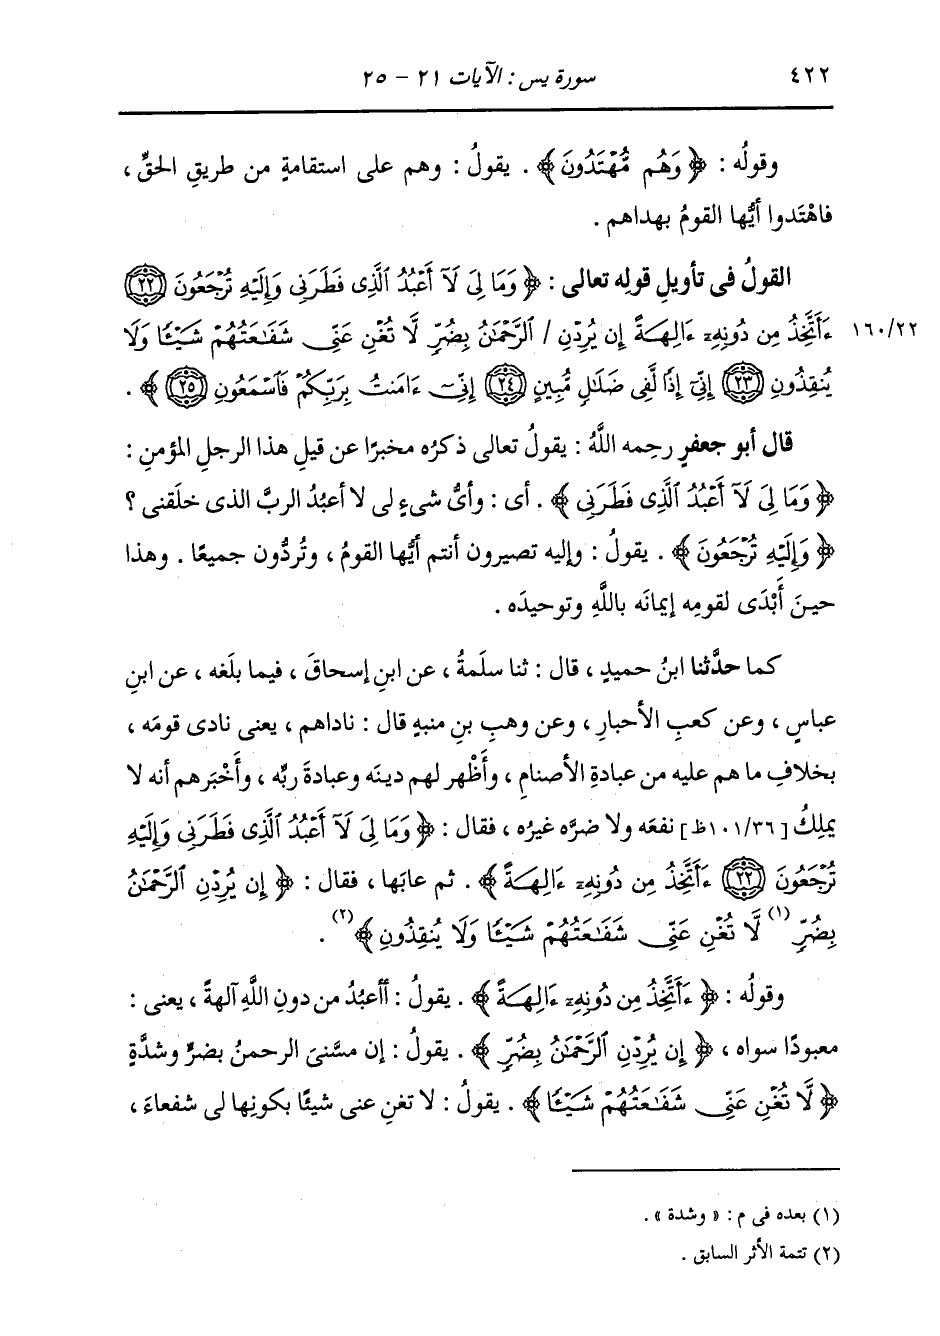 ٤٢٢ سورة يس : الآيات ٢١ - ٢٥
وقولُه : ﴿ وَهُم مُّهْتَدُونَ ﴾ . يقولُ : وهم على استقامةٍ من طريقِ الحقِّ ،
فاهْتَدوا أيُّها القومُ بهداهم .
القولُ فى تأويلِ قولِه تعالى : ﴿ وَمَا لِىَ لَآ أَعْبُدُ ٱلَّذِى فَطَرَنِى وَإِلَيْهِ تُرْجَعُونَ ٢٢
١٦٠/٢٢ ءَأَتَّخِذُ مِن دُونِهِۦٓ ءَالِهَةً إِن يُرِدْنِ / ٱلرَّحْمَٰنُ بِضُرٍّ لَّا تُغْنِ عَنِّى شَفَٰعَتُهُمْ شَيْـًٔا وَلَا
يُنقِذُونِ ٢٣ إِنِّىٓ إِذًا لَّفِى ضَلَٰلٍ مُّبِينٍ ٢٤ إِنِّىٓ ءَامَنتُ بِرَبِّكُمْ فَٱسْمَعُونِ ٢٥ ﴾ .
قال أبو جعفرٍ رحِمه اللَّهُ : يقولُ تعالى ذكرُه مخبرًا عن قيلِ هذا الرجلِ المؤمنِ :
﴿ وَمَا لِىَ لَآ أَعْبُدُ ٱلَّذِى فَطَرَنِى ﴾ . أى : وأىُّ شىءٍ لى لا أعبُدُ الربَّ الذى خلَقنى ؟
﴿ وَإِلَيْهِ تُرْجَعُونَ ﴾ . يقولُ : وإليه تصيرون أنتم أيُّها القومُ ، وتُردُّون جميعًا . وهذا
حينَ أَبْدَى لقومِه إيمانَه باللَّهِ وتوحيدَه .
كما حدَّثنا ابنُ حميدٍ ، قال : ثنا سلَمةُ ، عن ابنِ إسحاقَ ، فيما بلَغه ، عن ابنِ
عباسٍ ، وعن كعبِ الأحبارِ ، وعن وهبِ بنِ منبهٍ قال : ناداهم ، يعنى نادى قومَه ،
بخلافِ ما هم عليه من عبادةِ الأصنامِ ، وأَظْهر لهم دينَه وعبادةَ ربِّه ، وأَخْبَرهم أنه لا
يملِكُ [١٠١/٣٦ظ] نفعَه ولا ضرَّه غيرُه ، فقال : ﴿ وَمَا لِىَ لَآ أَعْبُدُ ٱلَّذِى فَطَرَنِى وَإِلَيْهِ
تُرْجَعُونَ ٢٢ ءَأَتَّخِذُ مِن دُونِهِۦٓ ءَالِهَةً ﴾ . ثم عابَها ، فقال : ﴿ إِن يُرِدْنِ ٱلرَّحْمَٰنُ
بِضُرٍّ (١) لَّا تُغْنِ عَنِّى شَفَٰعَتُهُمْ شَيْـًٔا وَلَا يُنقِذُونِ ﴾ (٢) .
وقولُه : ﴿ ءَأَتَّخِذُ مِن دُونِهِۦٓ ءَالِهَةً ﴾ . يقولُ : أأعبُدُ من دونِ اللَّهِ آلهةً ، يعنى :
معبودًا سواه ، ﴿ إِن يُرِدْنِ ٱلرَّحْمَٰنُ بِضُرٍّ ﴾ . يقولُ : إن مسَّنىَ الرحمنُ بضرٍّ وشدَّةٍ
﴿ لَّا تُغْنِ عَنِّى شَفَٰعَتُهُمْ شَيْـًٔا ﴾ . يقولُ : لا تغنِ عنى شيئًا بكونِها لى شفعاءَ ،
(١) بعده فى م : « وشدة » .
(٢) تتمة الأثر السابق .